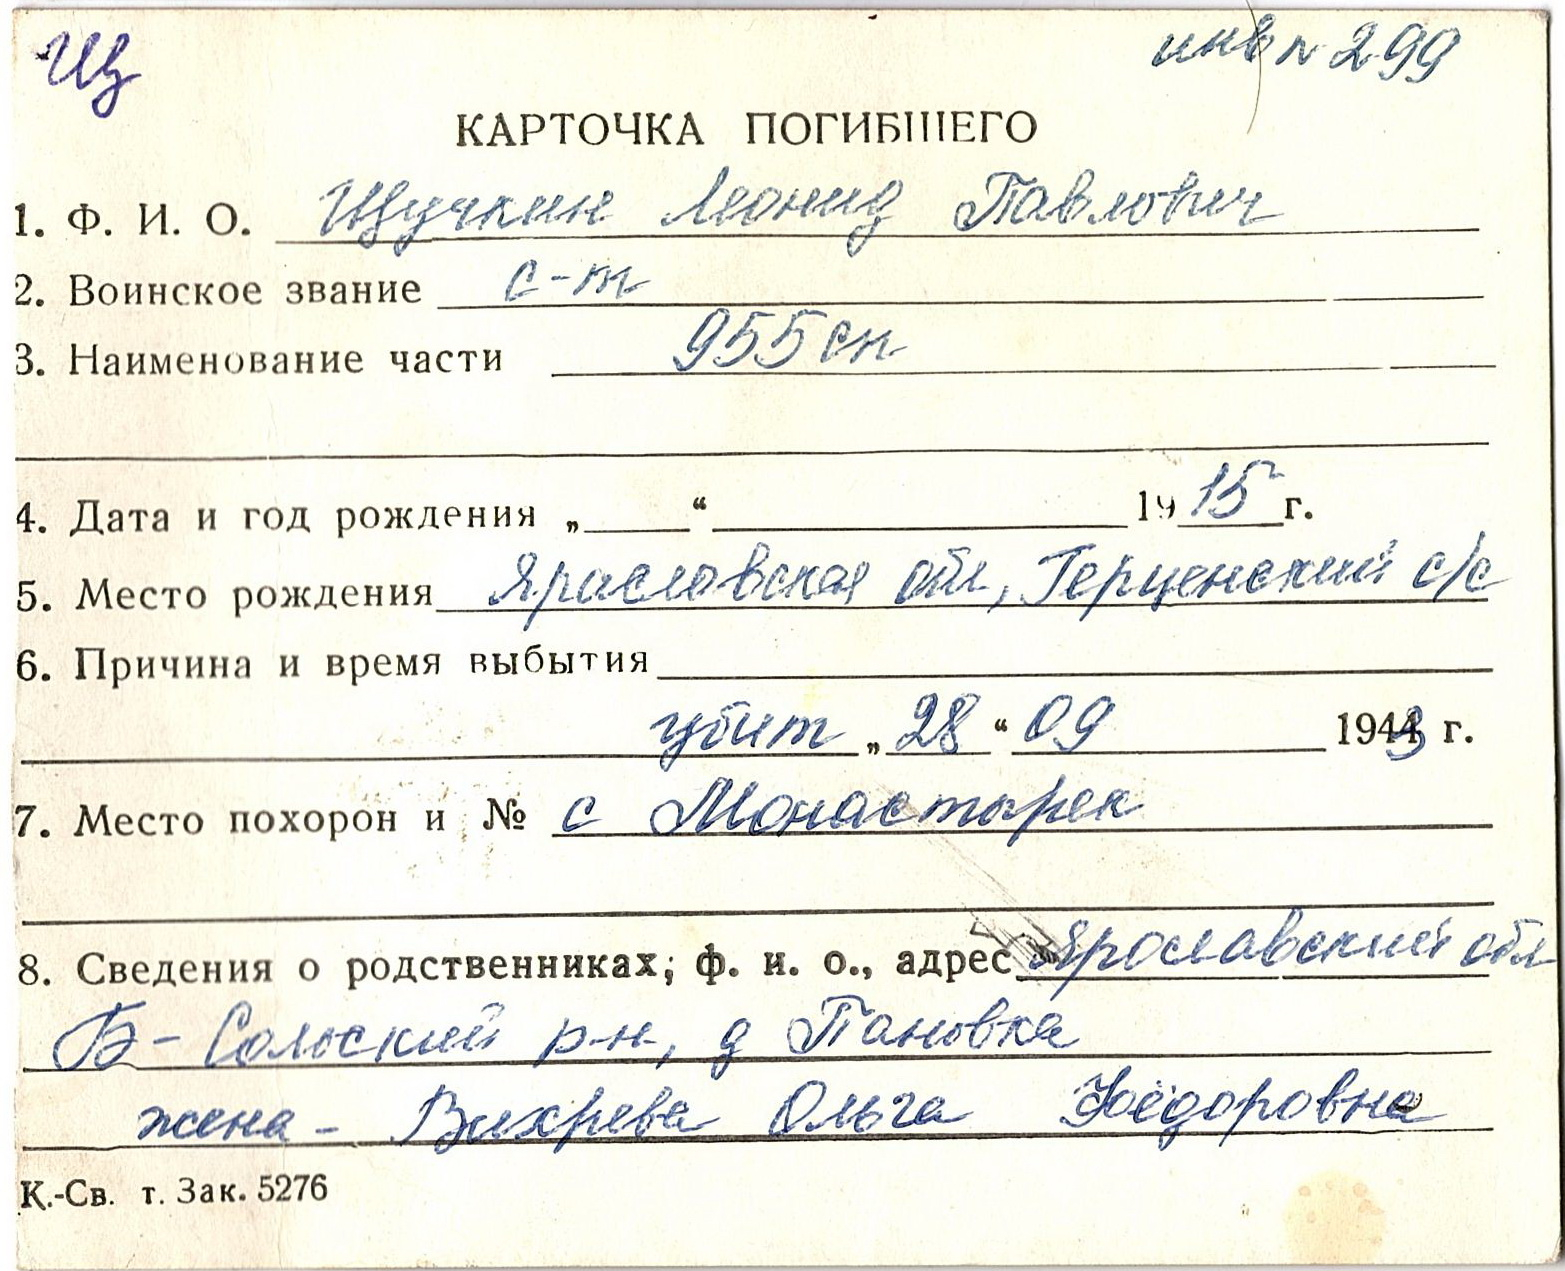 Щ
инв № 299
КАРТОЧКА ПОГИБШЕГО
1. Ф. И. О. Щучкин Леонид Павлович
2. Воинское звание с-т
3. Наименование части 955 сп
4. Дата и год рождения „ “ 1915 г.
5. Место рождения Ярасловская обл, Герценский с/с
6. Причина и время выбытия
убит „ 28 “ 09 1943 г.
7. Место похорон и № с Монастырек
8. Сведения о родственниках; ф. и. о., адрес Ярославский обл
Б-Сольский р-н, д Пановка
жена - Вихрева Ольга Фёдоровна
К.-Св. т. Зак. 5276